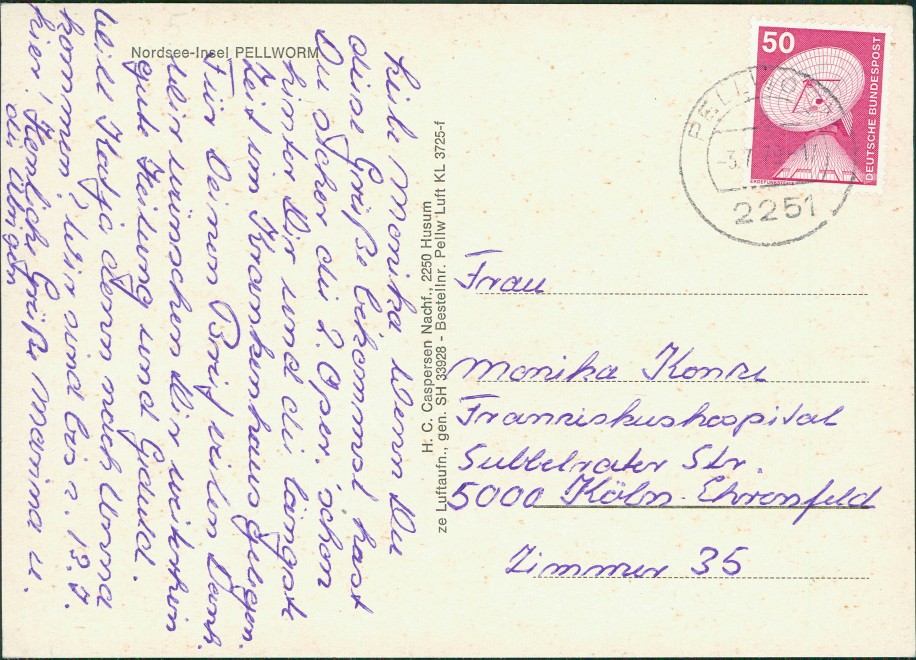 Nordsee-Insel PELLWORM
Liebe Monika, wenn Du
diese Grüße bekommst hast
Du sicher die 2. Oper. schon
hinter Dir und die längste
Zeit im Krankenhaus gelegen.
Für Deinen Brief vielen Dank.
Wir wünschen Dir weiterhin
gute Heilung und Geduld.
Will Katja denn nach Unna
kommen? Wir sind bis z. 13. d.
hier! Herzliche Grüße Mamma u.
die Übrigen
H. C. Caspersen Nachf., 2250 Husum
ze Luftaufn., gen. SH 33928 - Bestellnr. Pellw Luft KL 3725-f
50
DEUTSCHE BUNDESPOST
PELLWORM
2251
Frau
Monika
Franziskushospital
Subbelrater Str.
5000 Köln-Ehrenfeld
Zimmer 35